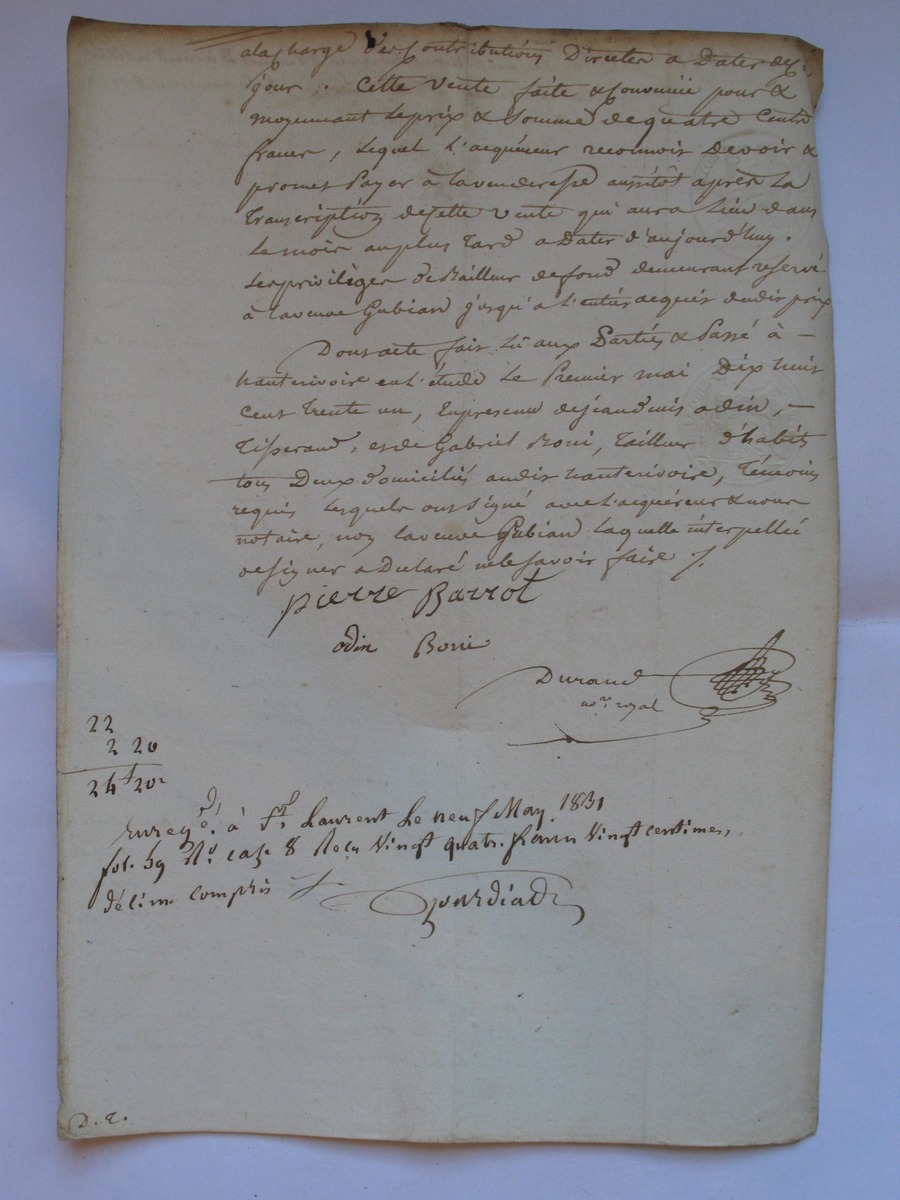 alacharge des Contributions Directes a Dater dece
jour. Cette vente faite & convenue pour &
moyennant leprix & Somme dequatre Cents
francs, lequel l'acquéreur reconnois Devoir &
promet payer à lavenderesse aussitot après La
Transcription decette vente qui aura Lieu dans
Le mois auplus Tard a Dater d'aujourd'huy.
Lesprivilèges de Bailleur defond demeurant reservé
à laveuve Gubian jusqu'a l'entier acquis dudit prix
Dont acte fait lu aux Parties & Passé à
hauterivoire en l'étude Le Premier mai Dix huit
Cent Trente un, Enpresence dejeandenis odin,
Tisserand, et de Gabriel Boni, Tailleur d'habits
tous Deux domiciliés audit hauterivoire, Témoins
requis Lesquels ont Signé avec l'acquéreur & nous
notaire, non laveuve Gubian laquelle interpellée
designer a Declaré nelesavoir faire /.
pierre Barrot
odin Boni
Durand
nore royal
22
2 20
24f 20c
Enregé. à St. Laurent Le neuf May 1831
fol. 59 Ro. case 8 Reçu Vingt quatre francs Vingt centimes,
décime compris
Gourdiat
D. T.